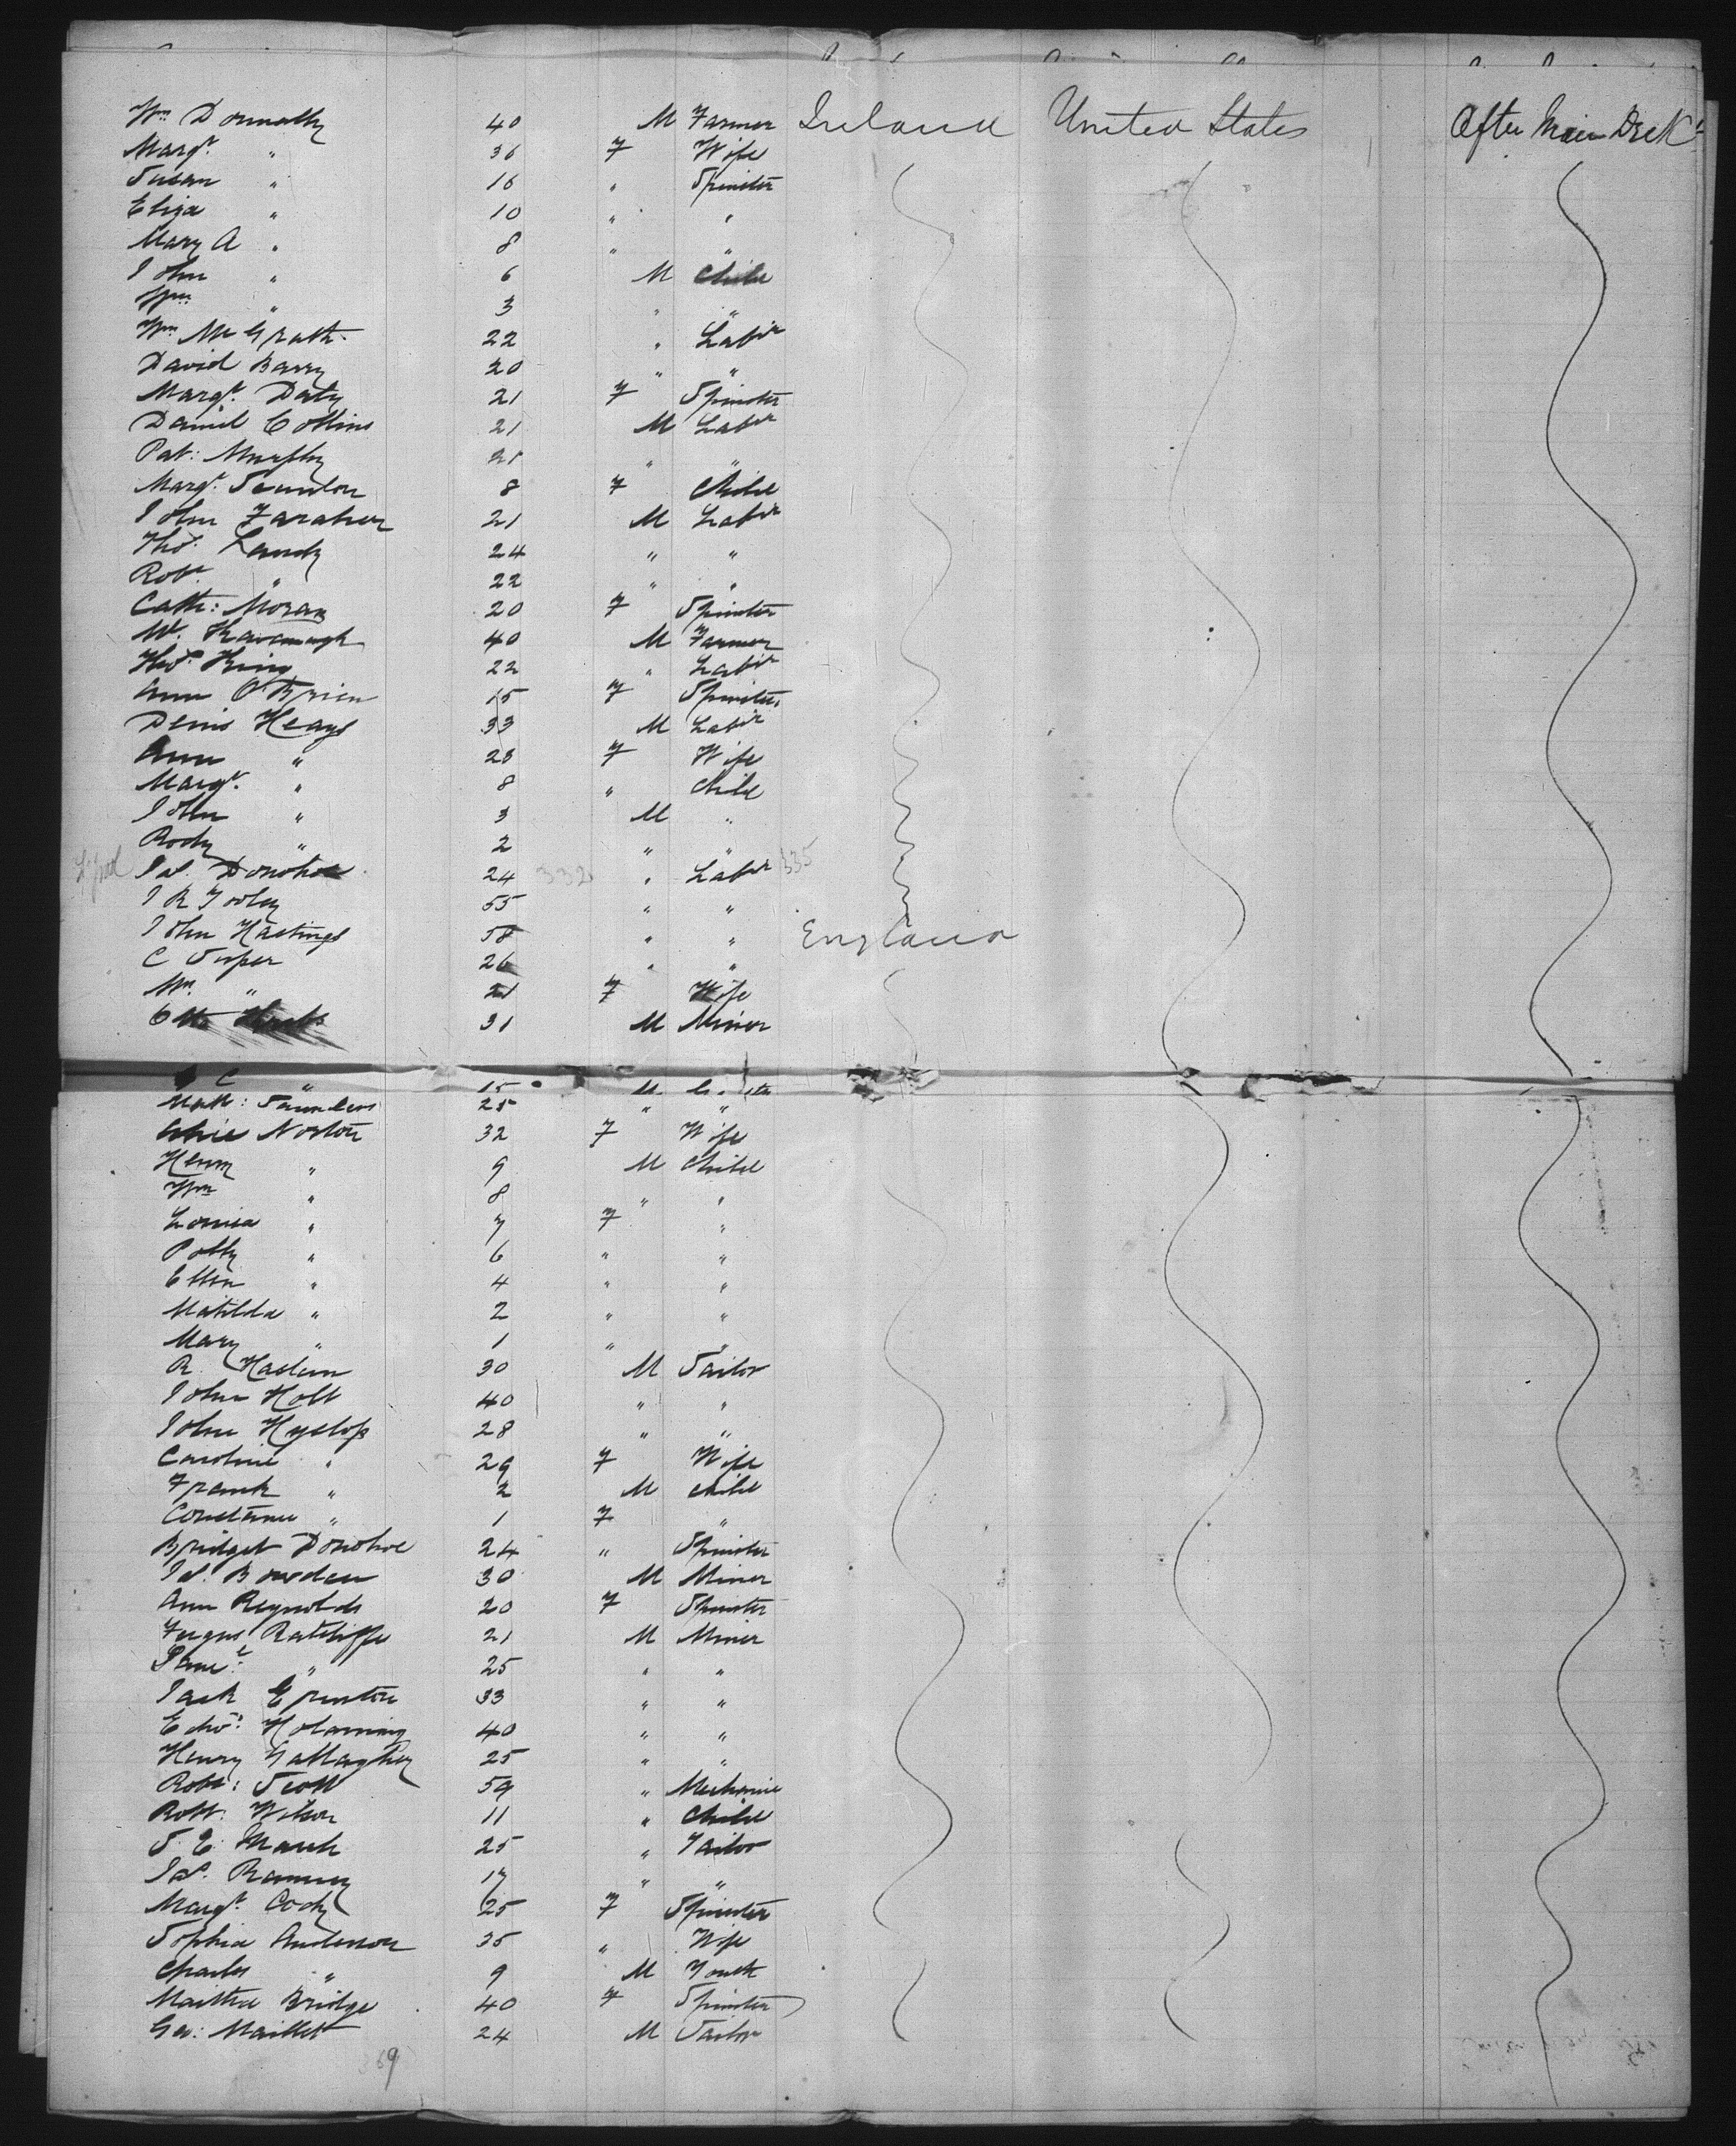 Wm Donnolly 40 M Farmer Ireland United States After Main Deck
Margt " 36 F Wife
Susan " 16 " Spinster
Eliza " 10 " "
Mary A " 8 " "
John " 6 M Child
Wm " 3 " "
Wm McGrath 22 " Labr
David Barry 20 " "
Margt. Daty 21 F Spinster
Daniel Collins 21 M Labr
Pat: Murphy 21 " "
Margt. Scanlon 8 F Child
John Faraher 21 M Labr
Thos. Landy 24 " "
Robt. " 22 " "
Cath: Moran 20 F Spinster
M. Kavanagh 40 M Farmer
Thos. King 22 " Labr
Ann O'Brien 15 F Spinster
Denis Heays 33 M Labr
Ann " 23 F Wife
Margt. " 8 " Child
John " 3 M "
Rody " 2 " "
L'pool Jas. Donohoe 24 332 " Labr 335
J R Tooley 55 " "
John Hastings 58 " " England
C Soper 26 " "
Mrs. " 21 F Wife
31 M Miner
C " 15 M
Matt: Saunders 25 " "
Norton 32 F Wife
Henry " 9 M Child
Wm " 8 " "
Louisa " 7 F "
Polly " 6 " "
Ellen " 4 " "
Matilda " 2 " "
Mary " 1 " "
R. Haslem 30 M Tailor
John Holt 40 " "
John Hyslop 28 " "
Caroline " 29 F Wife
Frank " 2 M Child
Constance " 1 F "
Bridget Donohoe 24 " Spinster
Js. Bowden 30 M Miner
Ann Reynolds 20 F Spinster
Fergus Ratcliffe 21 M Miner
Saml: " 25 " "
Jack 33 " "
Edwd: 40 " "
Henry Gallagher 25 " "
Robt: Scott 59 " Mechanic
Robt: Wilson 11 " Child
S. E. March 25 " Tailor
Jas. Ramsey 17 " "
Margt. Cody 25 F Spinster
Sophia Anderson 35 " Wife
Charles " 9 M Youth
Martha Bridge 40 F Spinster
Geo: Maillet 24 M Tailor
69